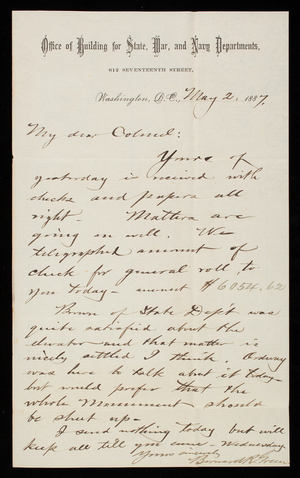 Office of Building for State, War, and Navy Departments,
612 SEVENTEENTH STREET,
Washington, D.C., May 2, 1887.
My dear Colonel:
Yours of
yesterday is received with
checks and papers all
right. Matters are
going on well. We
telegraphed amount of
check for general roll to
you today — amount $6054.62
Brown of State Dep't was
quite satisfied about the
elevator and that matter is
nicely settled I think. Ordway
was here to talk about it today —
but would prefer that the
whole Monument should
be shut up —
I send nothing today but will
keep all till you come — Wednesday.
Yours sincerely
Bernard R. Green